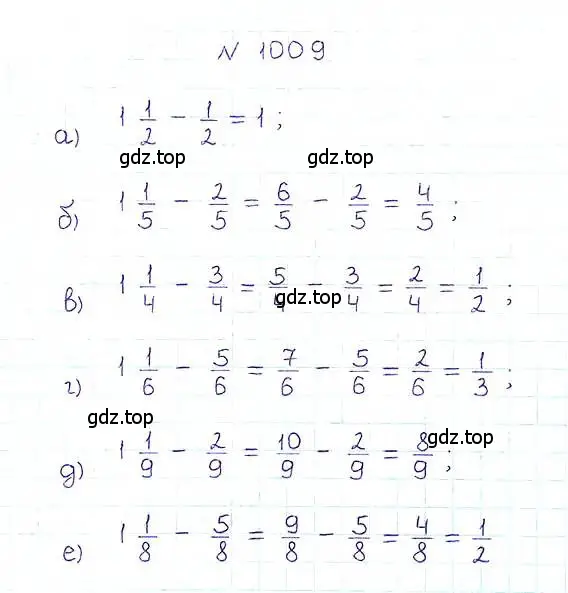 N 1009
а) 1 1/2 - 1/2 = 1;
gdz.top gdz.top
б) 1 1/5 - 2/5 = 6/5 - 2/5 = 4/5;
в) 1 1/4 - 3/4 = 5/4 - 3/4 = 2/4 = 1/2;
gdz.top
г) 1 1/6 - 5/6 = 7/6 - 5/6 = 2/6 = 1/3;
gdz.top
д) 1 1/9 - 2/9 = 10/9 - 2/9 = 8/9;
gdz.top
е) 1 1/8 - 5/8 = 9/8 - 5/8 = 4/8 = 1/2